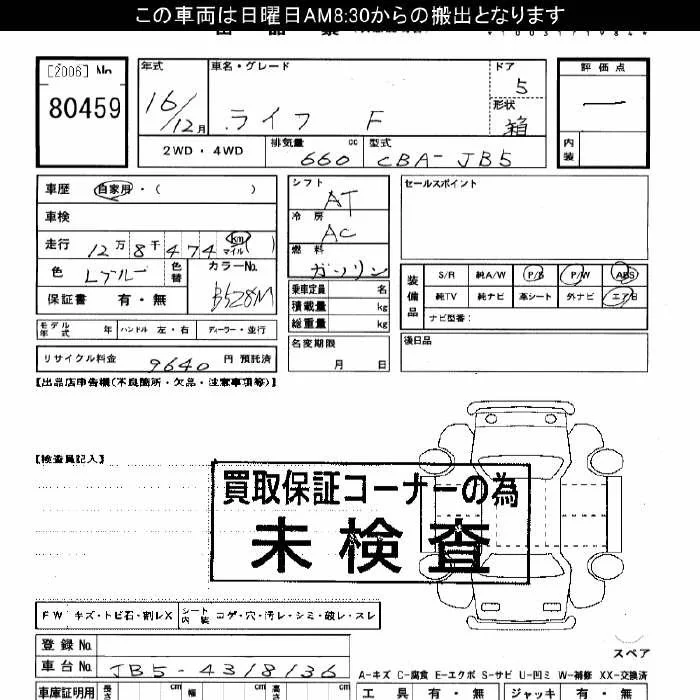 この車両は日曜日AM8:30からの搬出となります
[2006] No 80459
年式 16/12月 車名・グレード ライフ F ドア 5 形状 箱
評価点 — 内装
2WD・4WD 排気量 660 cc 型式 CBA-JB5
車歴 自家用・( )
車検
走行 12万8千474 km マイル( )
色 Lブルー 色替 カラーNo. B528M
保証書 有・無
モデル年式 年 ハンドル 左・右 ディーラー・並行
リサイクル料金 9640 円 預託済
シフト AT
冷房 AC
燃料 ガソリン
乗車定員 名
積載量 kg
総重量 kg
名変期限 月 日
セールスポイント
装備品 S/R 純A/W P/S P/W ABS
純TV 純ナビ 革シート 外ナビ エアB
ナビ型番:
後日品
【出品店申告欄(不良箇所・欠品・注意事項等)】
【検査員記入】
買取保証コーナーの為
未検査
FW キズ・トビ石・割レX シート内装 コゲ・穴・汚レ・シミ・破レ・スレ
登録No.
車台No. JB5-4318136
スペア
A-キズ C-腐食 E-エクボ S-サビ U-凹ミ W-補修 XX-交換済
車庫証明用 長さ cm 幅 cm 高さ cm 工具 有・無 ジャッキ 有・無